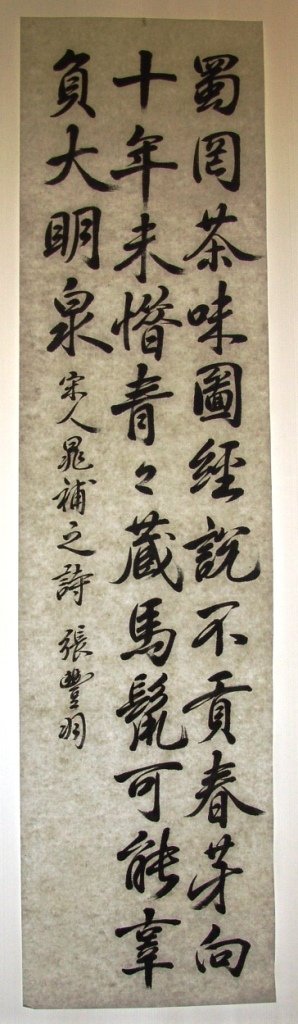 蜀罔茶味圖經說不貢春芽向
十年未憯青々藏馬鬣可能辜
負大明泉 宋人晁補之詩 張豐羽